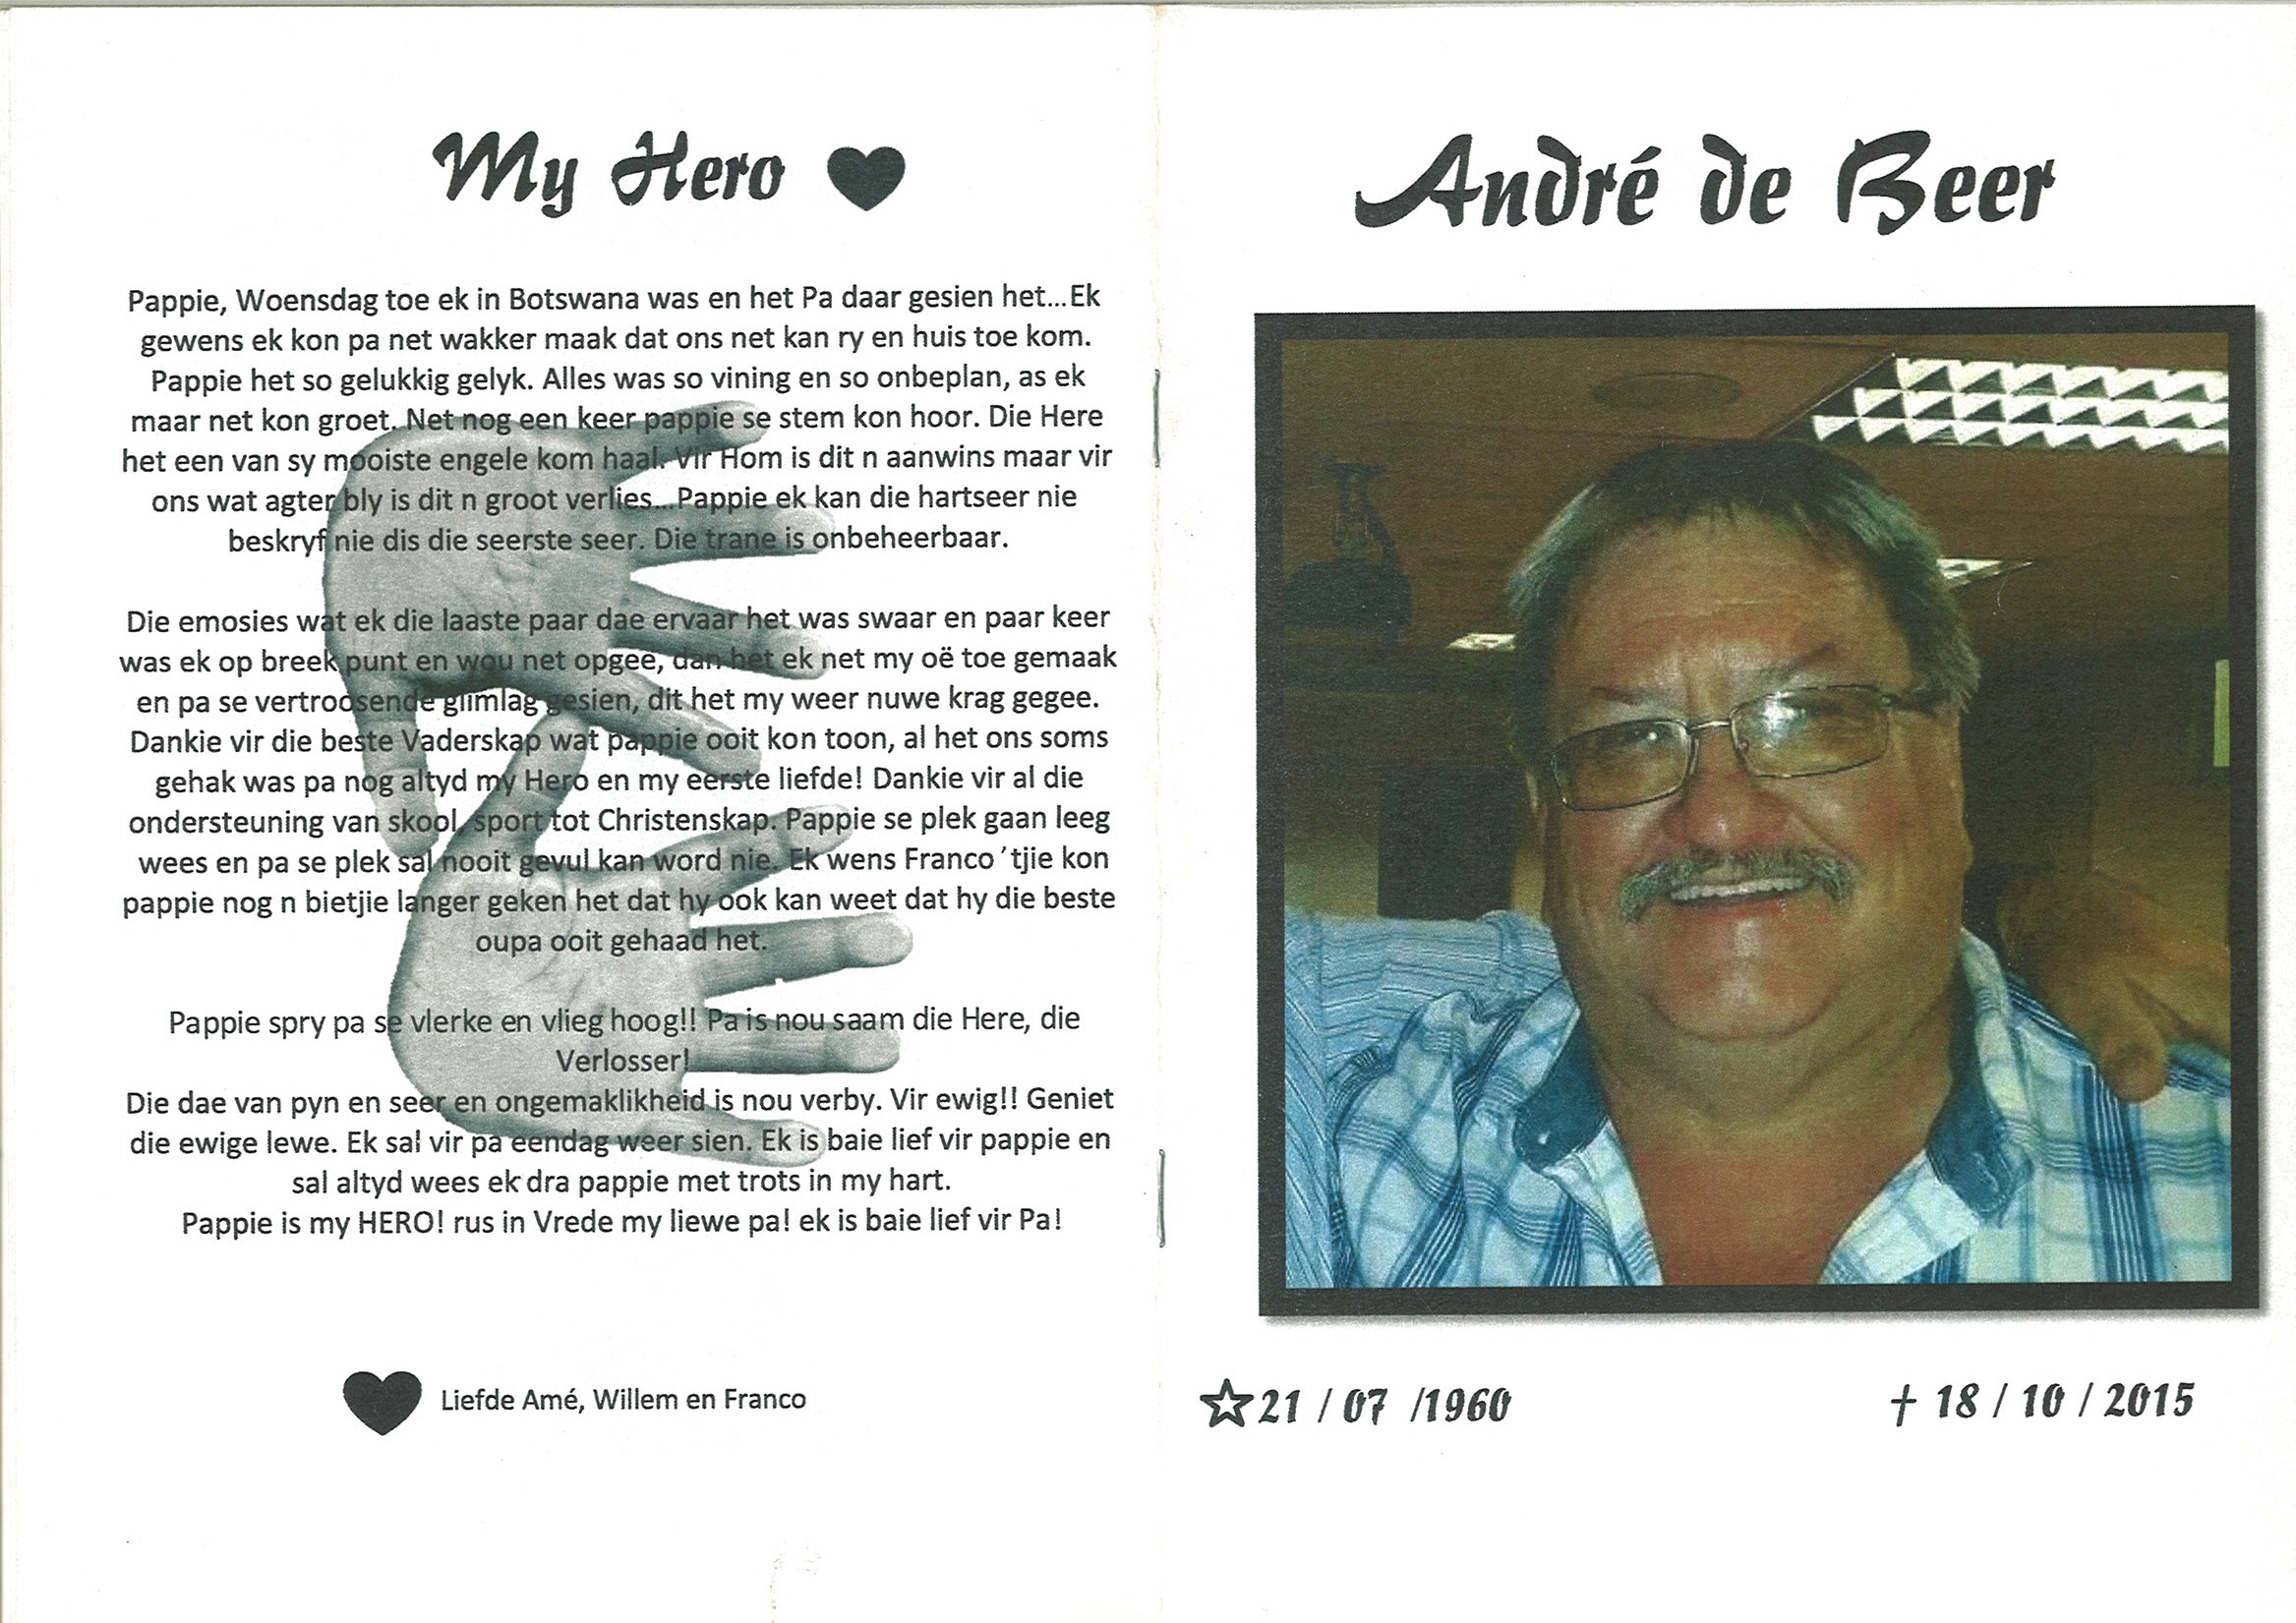 My Hero ♥
Pappie, Woensdag toe ek in Botswana was en het Pa daar gesien het...Ek
gewens ek kon pa net wakker maak dat ons net kan ry en huis toe kom.
Pappie het so gelukkig gelyk. Alles was so vining en so onbeplan, as ek
maar net kon groet. Net nog een keer pappie se stem kon hoor. Die Here
het een van sy mooiste engele kom haal. Vir Hom is dit n aanwins maar vir
ons wat agter bly is dit n groot verlies...Pappie ek kan die hartseer nie
beskryf nie dis die seerste seer. Die trane is onbeheerbaar.
Die emosies wat ek die laaste paar dae ervaar het was swaar en paar keer
was ek op breek punt en wou net opgee, dan het ek net my oë toe gemaak
en pa se vertroosende glimlag gesien, dit het my weer nuwe krag gegee.
Dankie vir die beste Vaderskap wat pappie ooit kon toon, al het ons soms
gehak was pa nog altyd my Hero en my eerste liefde! Dankie vir al die
ondersteuning van skool, sport tot Christenskap. Pappie se plek gaan leeg
wees en pa se plek sal nooit gevul kan word nie. Ek wens Franco 'tjie kon
pappie nog n bietjie langer geken het dat hy ook kan weet dat hy die beste
oupa ooit gehaad het.
Pappie spry pa se vlerke en vlieg hoog!! Pa is nou saam die Here, die
Verlosser!
Die dae van pyn en seer en ongemaklikheid is nou verby. Vir ewig!! Geniet
die ewige lewe. Ek sal vir pa eendag weer sien. Ek is baie lief vir pappie en
sal altyd wees ek dra pappie met trots in my hart.
Pappie is my HERO! rus in Vrede my liewe pa! ek is baie lief vir Pa!
♥ Liefde Amé, Willem en Franco
André de Beer
☆21 / 07 /1960
† 18 / 10 / 2015